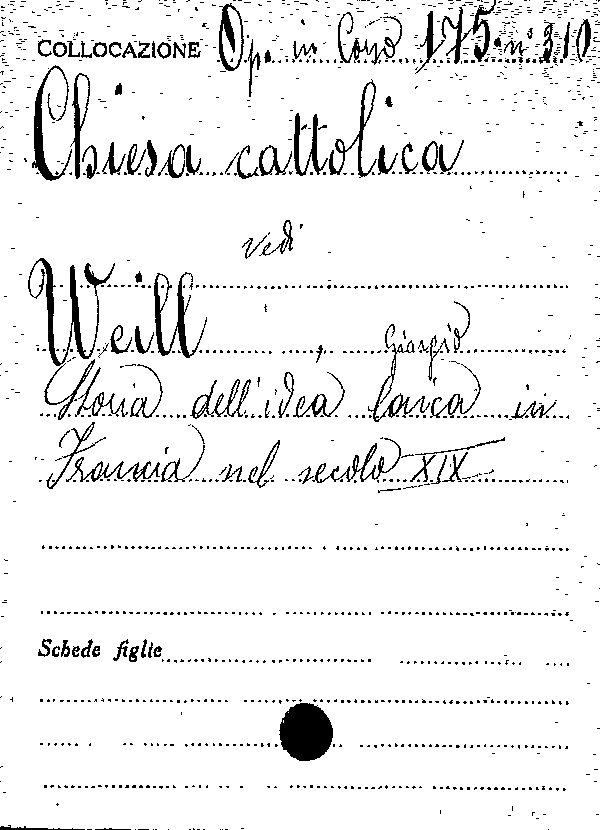 COLLOCAZIONE Op. in Cons 175. n° 310
Chiesa cattolica
vedi
Weill, Giorgio
Storia dell'idea laica in
Francia nel secolo XIX
Schede figlie